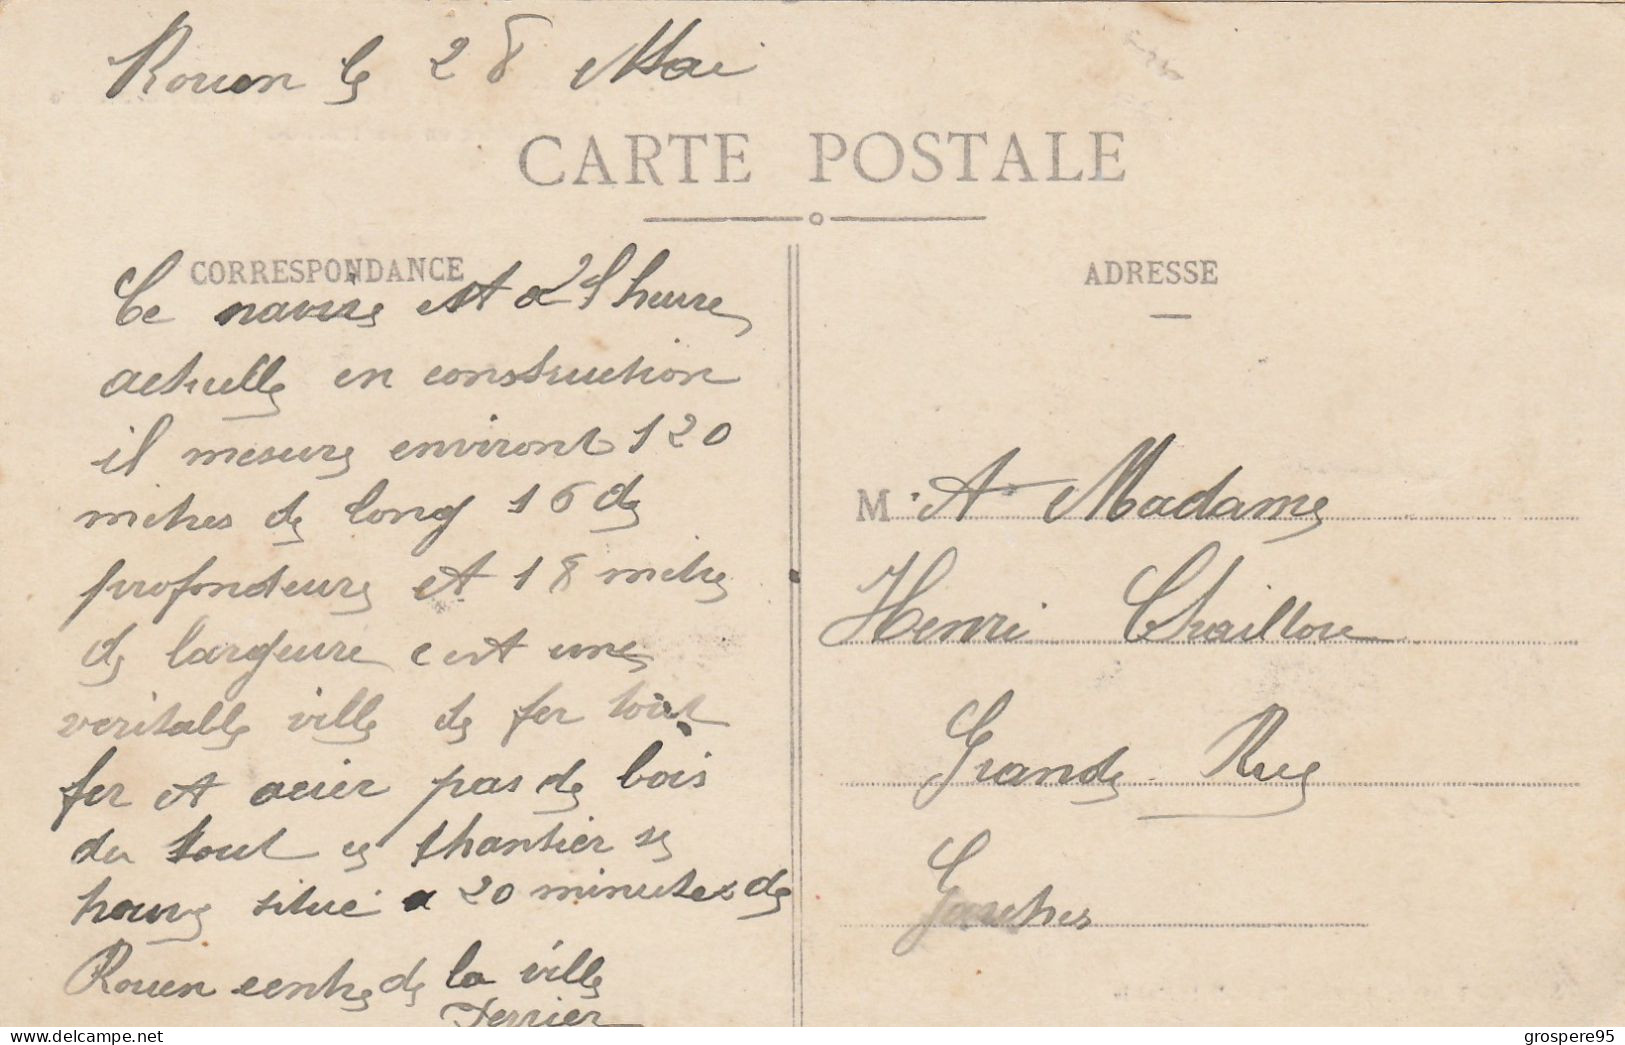 Rouen le 28 Mai
CARTE POSTALE
CORRESPONDANCE
Ce navire est a l'heure
actuelle en construction
il mesure environt 120
mètres de long 16 de
profondeure et 18 mètre
de largeure c est une
veritable ville de fer tout
fer et acier pas de bois
du tout ce chantier se
trouve situé a 20 minutes de
Rouen centre de la ville
Terrier
ADRESSE
M. A Madame
Henri Chaillou
Grande Rue
grospere95